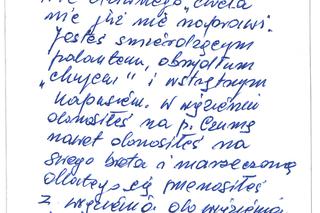 nie już nie naprawi.
Jesteś śmierdzącym
palantem, obrzydłym
„chujem" i wstrętnym
kapusiem. W więzieniu
donosiłeś na p. Czumę
nawet donosiłeś na
swego brata i narzeczoną
się
z więzienia do więzienia